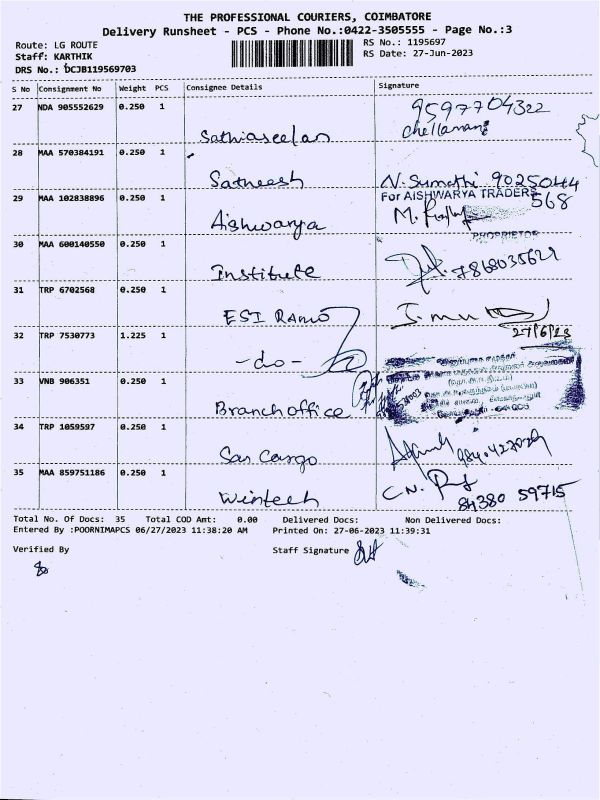 THE PROFESSIONAL COURIERS, COIMBATORE
Delivery Runsheet - PCS - Phone No.:0422-3505555 - Page No.:3
Route: LG ROUTE
Staff: KARTHIK
DRS No.: DCJB119569703
RS No.: 1195697
RS Date: 27-Jun-2023
S No Consignment No Weight PCS Consignee Details Signature
27 NDA 905552629 0.250 1
Sathiaseelan
9597704322
28 MAA 570384191 0.250 1
Satheesh
N. Sumathi 9025044
568
29 MAA 102838896 0.250 1
Aishwarya
For AISHWARYA TRADERS
PROPRIETOR
30 MAA 600140550 0.250 1
Institute
7868035621
31 TRP 6702568 0.250 1
ESI
27/6/23
32 TRP 7530773 1.225 1
-do-
33 VNB 906351 0.250 1
Branch office
34 TRP 1059597 0.250 1
Cargo
35 MAA 859751186 0.250 1
Wintech
84380 59715
Total No. Of Docs: 35 Total COD Amt: 0.00 Delivered Docs: Non Delivered Docs:
Entered By :POORNIMAPCS 06/27/2023 11:38:20 AM Printed On: 27-06-2023 11:39:31
Verified By Staff Signature